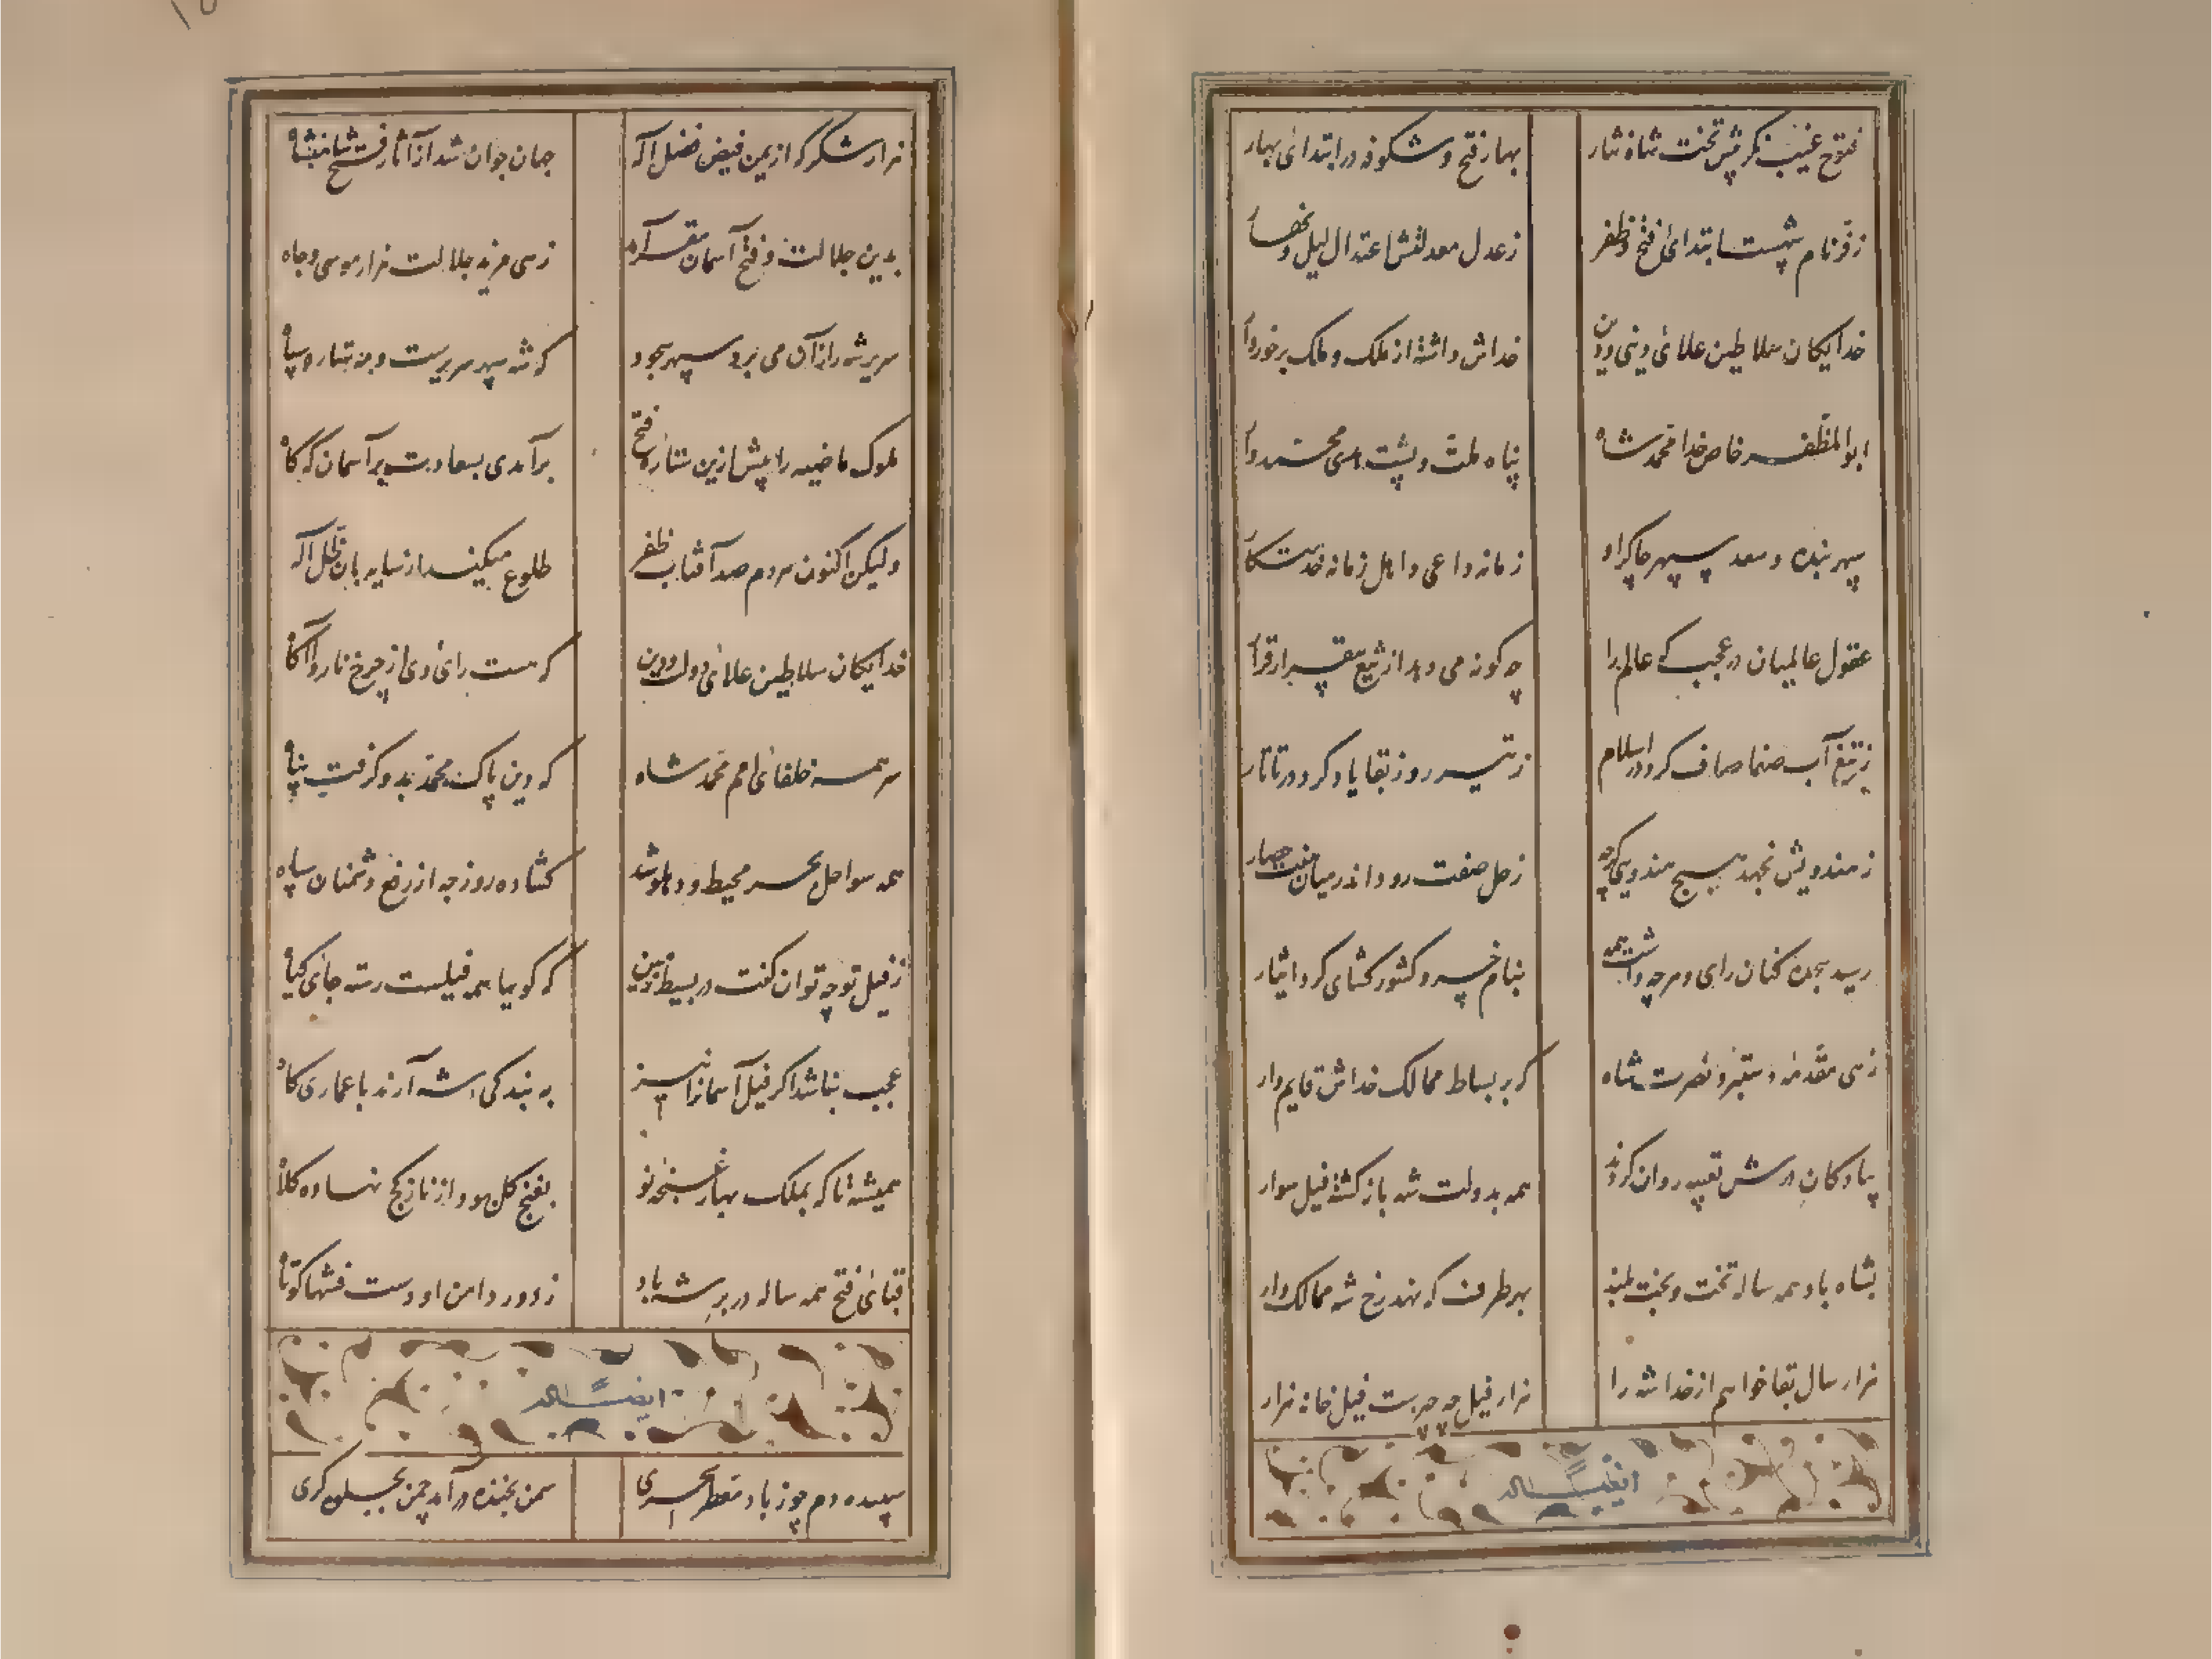 فتوح غیب نکر پیش تخت شاه نثار بهار فتح و شکوفه در ابتدای بهار
ابتدای فتح و ظفر ز عدل معدلتش اعتدال لیل و نهار
خدایکان سلاطین علائی دنیی و دین خداش داشته از ملک و ملک برخوردار
ابوالمظفر خاص خدا محمد شاه پناه ملت و پشت
سپهر بنده و سعد سپهر چاکر او زمانه داعی و اهل زمانه خدمتکار
عقول عالمیان در عجب که عالم را چه کونه می دهد از تیغ بیقرار قرار
ز تیغ آب صفا صاف کرد در اسلام ز تیر روز بقا یاد کرد در تاتار
ز هندویش نجهد هیچ هندویی کرچه زحل صفت رود اندر میان هفت حصار
رسید سجده کنان رای و هرچه داشت همه بنام خسرو کشور کشای کرد ایثار
زهی مقدمه و نصرت شاه که بر بساط ممالک خداش قایم دار
پیادکان درش تعبیه روان کردند همه بدولت شه باز کشته فیل سوار
بشاه باد همه ساله تخت و بخت بلند بهر طرف که نهد رخ شه ممالک دار
هزار سال بقا خواهم از خدا شه را هزار فیل چه چیزست فیل خانه هزار
ایضاً له
هزار شکر که از یمن فیض فضل اله جهان جوان شد از آثار فتح شاهنشاه
بدین جلالت و فتح آسمان مقر آمد زهی مزید جلالت هزار موسی وجاه
سریر شه را از آن می برد سپهر سجود که شه سپهر سریرست و مه تبار و سپاه
ملوک ماضیه را پیش ازین ستاره فتح برآمدی بسعادت بر آسمان که کاه
ولیکن اکنون هر دم صد آفتاب ظفر طلوع میکند از سایه بان ظل اله
خدایکان سلاطین علائی دول و دین که هست رای وی از چرخ آکاه
سر همه خلفای امم محمد شاه که دین پاک محمد بدو کرفت پناه
همه سواحل بحر محیط کشاده روز چه از رفع دشمنان سیاه
ز فیل تو چه توان کفت در بسیط زمین که کوییا همه فیلست رسته جای کیاه
عجب نباشد اکر فیل آسمانرا نیز به بندکی شه آرند با عماری کاه
همیشه تا که بملک بهار غنچه نو بغنج کل بود از ناز کج نهاده کلاه
قبای فتح همه ساله در بر شه باد ز دور دامن او دست فتنها کوتاه
ایضاً له
سپیده دم چو ز باد معطر سحری سمن بخنده درآید چمن بجلوه کری